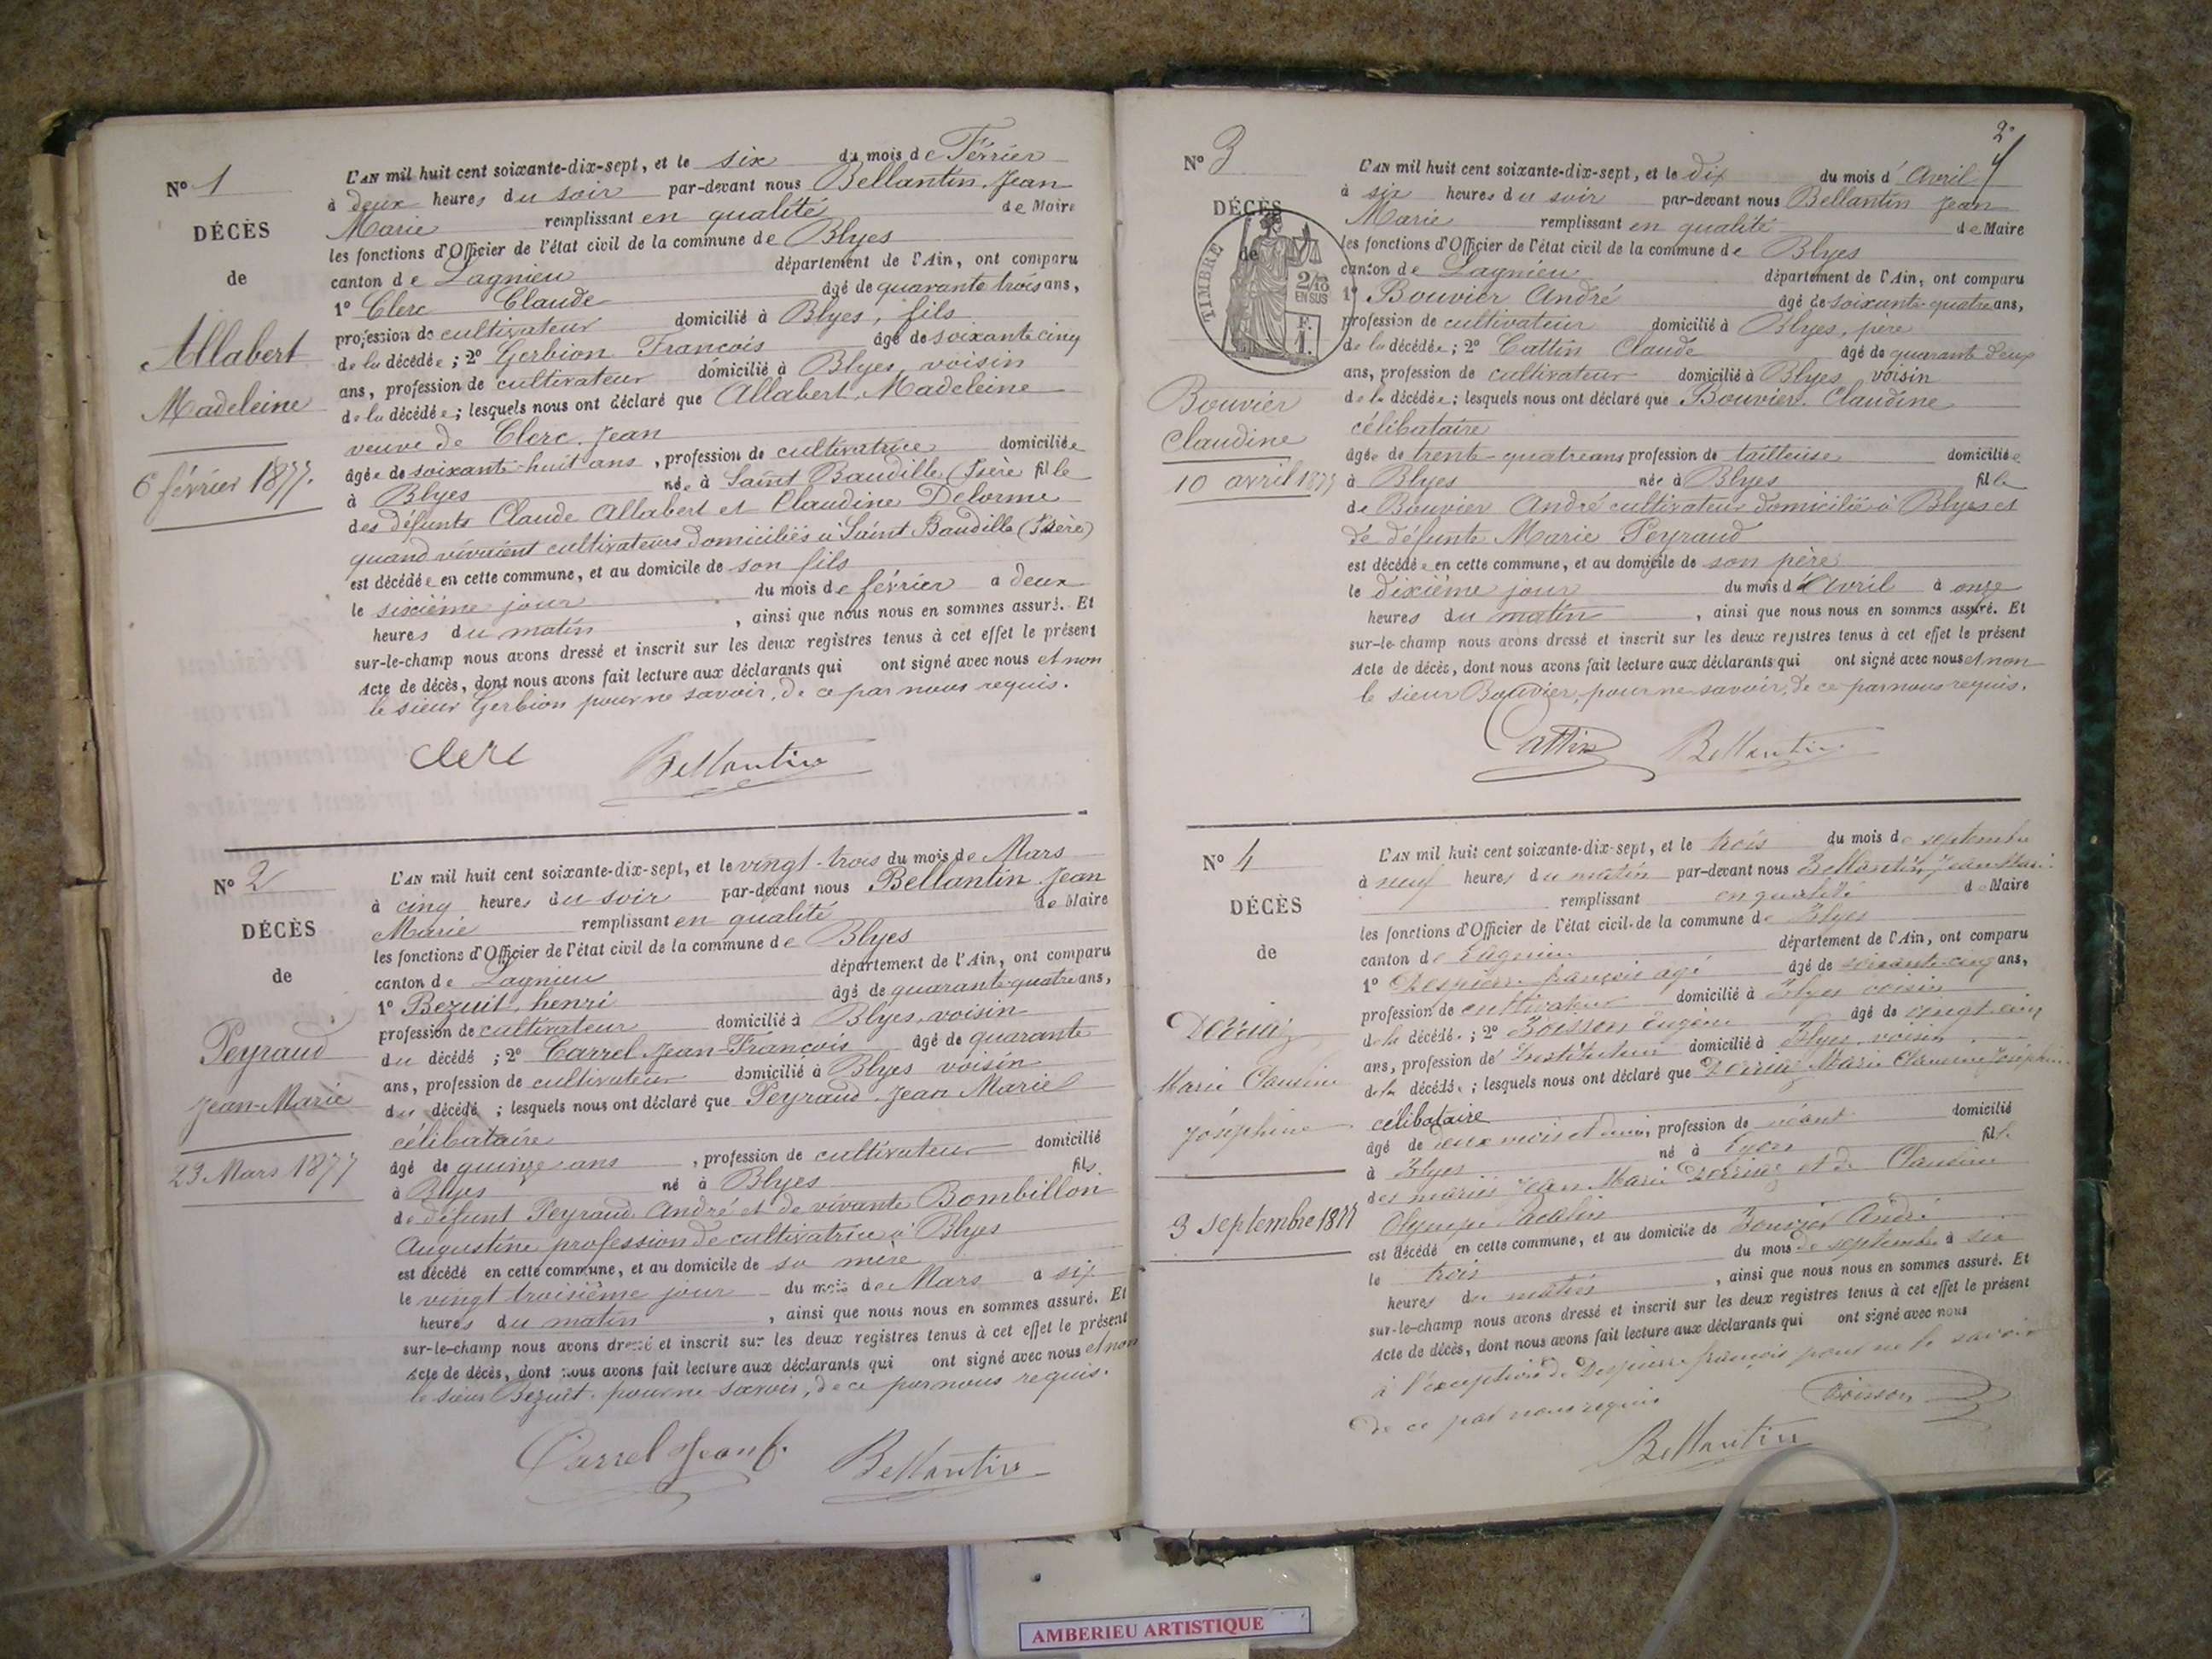 N° 1
DÉCÈS
de
Allabert
Madeleine
6 février 1877.
L'AN mil huit cent soixante-dix-sept, et le six du mois de Février
à deux heures du soir par-devant nous Bellantin Jean
Marie remplissant en qualité de Maire
les fonctions d'Officier de l'état civil de la commune de Blyes
canton de Lagnieu département de l'Ain, ont comparu
1° Clerc Claude âgé de quarante trois ans,
profession de cultivateur domicilié à Blyes, fils
de la décédée ; 2° Gerbion François âgé de soixante cinq
ans, profession de cultivateur domicilié à Blyes, voisin
de la décédée ; lesquels nous ont déclaré que Allabert Madeleine
veuve de Clerc Jean
âgée de soixante-huit ans, profession de cultivatrice domiciliée
à Blyes née à Saint Baudille (Isère) fille
des défunts Claude Allabert et Claudine Delorme
quand vivaient cultivateurs domiciliés à Saint Baudille (Isère)
est décédée en cette commune, et au domicile de son fils
le sixième jour du mois de février à deux
heures du matin, ainsi que nous nous en sommes assuré. Et
sur-le-champ nous avons dressé et inscrit sur les deux registres tenus à cet effet le présent
Acte de décès, dont nous avons fait lecture aux déclarants qui ont signé avec nous et non
le sieur Gerbion pour ne savoir, de ce par nous requis.
Clerc Bellantin
N° 2
DÉCÈS
de
Peyraud
Jean-Marie
23 Mars 1877
L'AN mil huit cent soixante-dix-sept, et le vingt-trois du mois de Mars
à cinq heures du soir par-devant nous Bellantin Jean
Marie remplissant en qualité de Maire
les fonctions d'Officier de l'état civil de la commune de Blyes
canton de Lagnieu département de l'Ain, ont comparu
1° Bezuit, henri âgé de quarante-quatre ans,
profession de cultivateur domicilié à Blyes, voisin
du décédé ; 2° Carrel Jean-François âgé de quarante
ans, profession de cultivateur domicilié à Blyes voisin
du décédé ; lesquels nous ont déclaré que Peyraud Jean Marie
célibataire
âgé de quinze ans, profession de cultivateur domicilié
à Blyes né à Blyes fils
de défunt Peyraud André et de vivante Bombillon
Augustine profession de cultivatrice à Blyes
est décédé en cette commune, et au domicile de sa mère
le vingt troisième jour du mois de Mars à six
heures du matin, ainsi que nous nous en sommes assuré. Et
sur-le-champ nous avons dressé et inscrit sur les deux registres tenus à cet effet le présent
Acte de décès, dont nous avons fait lecture aux déclarants qui ont signé avec nous et non
le sieur Bezuit, pour ne savoir, de ce par nous requis.
Carrel Jean f. Bellantin
2e
N° 3
DÉCÈS
de
TIMBRE
2/10
EN SUS
F.
1.
Bouvier
Claudine
10 avril 1877
L'AN mil huit cent soixante-dix-sept, et le dix du mois d'Avril
à six heures du soir par-devant nous Bellantin Jean
Marie remplissant en qualité de Maire
les fonctions d'Officier de l'état civil de la commune de Blyes
canton de Lagnieu département de l'Ain, ont comparu
1° Bouvier André âgé de soixante-quatre ans,
profession de cultivateur domicilié à Blyes, père
de la décédée ; 2° Cattin Claude âgé de quarante deux
ans, profession de cultivateur domicilié à Blyes voisin
de la décédée ; lesquels nous ont déclaré que Bouvier Claudine
célibataire
âgée de trente-quatre ans profession de tailleuse domiciliée
à Blyes née à Blyes fille
de Bouvier André cultivateur domicilié à Blyes et
de défunte Marie Peyraud
est décédée en cette commune, et au domicile de son père
le dixième jour du mois d'Avril à onze
heures du matin, ainsi que nous nous en sommes assuré. Et
sur-le-champ nous avons dressé et inscrit sur les deux registres tenus à cet effet le présent
Acte de décès, dont nous avons fait lecture aux déclarants qui ont signé avec nous et non
le sieur Bouvier, pour ne savoir, de ce par nous requis.
Cattin Bellantin
N° 4
DÉCÈS
de
Marie Claudine
Joséphine
3 septembre 1877
L'AN mil huit cent soixante-dix-sept, et le trois du mois de septembre
à neuf heures du matin par-devant nous Bellantin, Jean Marie
remplissant en qualité de Maire
les fonctions d'Officier de l'état civil de la commune de Blyes
canton de Lagnieu département de l'Ain, ont comparu
1° Despierre françois agé âgé de soixante-cinq ans,
profession de cultivateur domicilié à Blyes voisin
de la décédé. ; 2° Boisson Eugène âgé de vingt cinq
ans, profession de Instituteur domicilié à Blyes, voisin
de la décédé. ; lesquels nous ont déclaré que Marie Claudine Joséphine
célibataire
âgé de deux mois et demi, profession de néant domicilié
à Blyes né à Lyon fille
des mariés Jean Marie et de Claudine
Olympe
est décédé en cette commune, et au domicile de Bouvier André
le trois du mois de septembre à six
heures du matin, ainsi que nous nous en sommes assuré. Et
sur-le-champ nous avons dressé et inscrit sur les deux registres tenus à cet effet le présent
Acte de décès, dont nous avons fait lecture aux déclarants qui ont signé avec nous
à l'exception de Despierre françois pour ne le savoir
de ce par nous requis
Boisson
Bellantin
AMBERIEU ARTISTIQUE